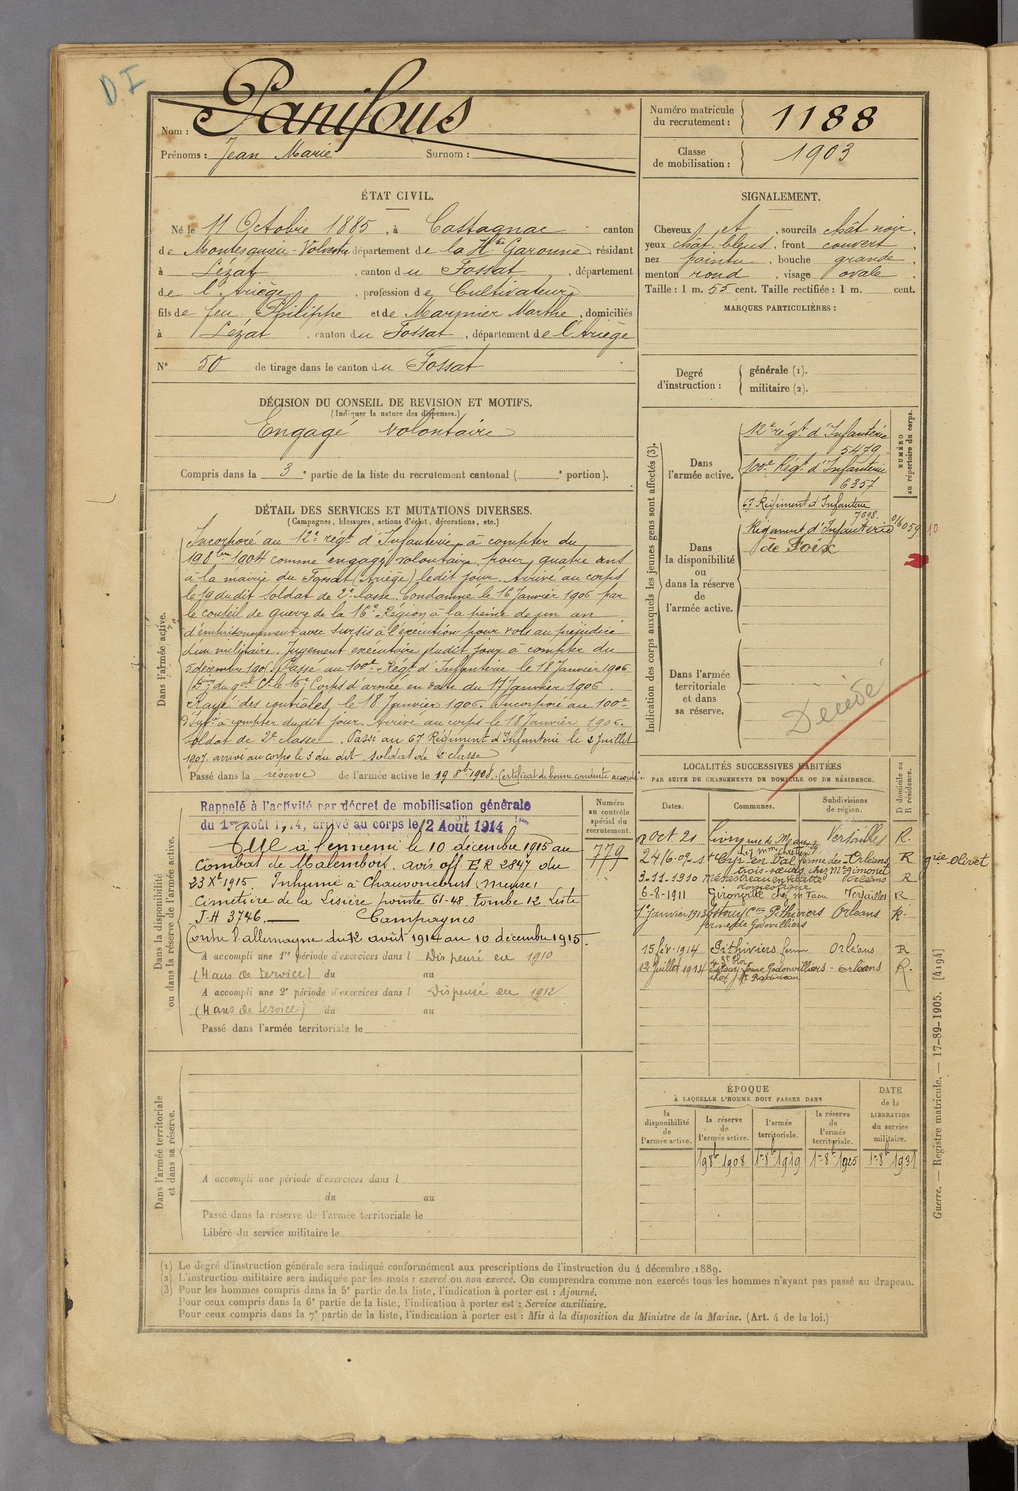 D.I
Nom : Panifous
Prénoms : Jean Marie Surnom :
Numéro matricule
du recrutement : 1188
Classe
de mobilisation : 1903
ÉTAT CIVIL.
Né le 11 Octobre 1885, à Castagnac canton
de Montesquieu Volvestre département de la Hte Garonne, résidant
à Lézat, canton du Fossat, département
de l'Ariège, profession de Cultivateur
fils de feu Philippe et de Marthe, domiciliés
à Lézat, canton du Fossat, département de l'Ariège
N° 50 de tirage dans le canton du Fossat
SIGNALEMENT.
Cheveux et, sourcils chât noir,
yeux chât bleus, front couvert,
nez pointu, bouche grande,
menton rond, visage ovale
Taille : 1 m. 55 cent. Taille rectifiée : 1 m. cent.
MARQUES PARTICULIÈRES :
Degré
d'instruction :
générale (1).
militaire (2).
DÉCISION DU CONSEIL DE REVISION ET MOTIFS.
(Indiquer la nature des dispenses.)
Engagé volontaire
Compris dans la 3e partie de la liste du recrutement cantonal ( e portion).
Indication des corps auxquels les jeunes gens sont affectés (3).
NUMÉRO
au répertoire du corps.
Dans
l'armée active.
12e régt d'Infanterie
5479
100e Régt d'Infanterie
6357
67 Régiment d'Infanterie
7098
Dans
la disponibilité
ou
dans la réserve
de
l'armée active.
Régiment d'Infanterie
de Foix
016059
10
Dans l'armée
territoriale
et dans
sa réserve.
Décédé
DÉTAIL DES SERVICES ET MUTATIONS DIVERSES.
(Campagnes, blessures, actions d'éclat, décorations, etc.)
Dans l'armée active.
Incorporé au 12e régt d'Infanterie à compter du
19 8bre 1904 comme engagé volontaire pour quatre ans
à la mairie du Fossat (Ariège) ledit jour. Arrivé au corps
le 19 dudit Soldat de 2e classe. Condamné le 16 Janvier 1906 par
le conseil de guerre de la 16e Région à la peine de un an
d'emprisonnement avec sursis à l'exécution pour vols au préjudice
d'un militaire. Jugement exécutoire dudit jour à compter du
5 décembre 1905. Passé au 100e Régt d'Infanterie le 18 Janvier 1906
du gal Ct le 16e Corps d'armée en date du 17 Janvier 1906.
Rayé des contrôles le 18 Janvier 1906. Incorporé au 100e
d'Infie à compter du dit jour. Arrivé au corps le 18 janvier 1906.
Soldat de 2e classe. Passé au 67 Régiment d'Infanterie le 2 Juillet
1907. arrivé au corps le 3 du dit. soldat de 2 classe
Passé dans la réserve de l'armée active le 19 8bre 1908. Certificat de bonne conduite accordé
Dans la disponibilité
ou dans la réserve de l'armée active.
Rappelé à l'activité par décret de mobilisation générale
du 1er août 1914, arrivé au corps le 12 Août 1914
Tué à l'ennemi le 10 décembre 1915 au
Combat de avis off ER 2847 du
23 Xe 1915. Inhumé à Chauvoncourt (Meuse)
Cimetière de la Lisière pointe 61-48. Tombe 12 Liste
J.H 3746. Campagnes
Contre l'allemagne du 12 août 1914 au 10 décembre 1915.
A accompli une 1re période d'exercices dans l Dispensé en 1910
(4 ans de Service) du au
A accompli une 2e période d'exercices dans l Dispensé en 1912
(4 ans de service) du au
Passé dans l'armée territoriale le
Numéro
au contrôle
spécial du
recrutement.
779
LOCALITÉS SUCCESSIVES HABITÉES
PAR SUITE DE CHANGEMENTS DE DOMICILE OU DE RÉSIDENCE.
Dates. Communes. Subdivisions
de région.
D domicile ou
R résidence.
9 oct 21 Livry rue de Meaux Versailles R.
24-10-09 St Crép-en-Val ferme des Orléans R grie olivet
trois-sœurs, chez Mr Gimonet
3-11-1910 Ménestreau en Villette Orléans R
domestique
6-8-1911 Gironville chez Mr Versailles R
1er Janvier 1913 Estouy con Pithiviers Orléans R.
ferme de Godonvilliers
15 fév. 1914 Pithiviers ferme Orléans R
12 Juillet 1914 Estouy ferme Godonvilliers - Orléans R.
Dans l'armée territoriale
et dans sa réserve.
A accompli une période d'exercices dans l
du au
Passé dans la réserve de l'armée territoriale le
Libéré du service militaire le
ÉPOQUE
À LAQUELLE L'HOMME DOIT PASSER DANS
la
disponibilité
de
l'armée active.
la réserve
de
l'armée active.
l'armée
territoriale.
la réserve
de
l'armée
territoriale.
DATE
de la
LIBÉRATION
du service
militaire.
19 8b 1908 1er 8b 1919 1er 8b 1925 1er 8b 1931
Guerre. — Registre matricule. — 17-89-1905. [4194]
(1) Le degré d'instruction générale sera indiqué conformément aux prescriptions de l'instruction du 4 décembre 1889.
(2) L'instruction militaire sera indiquée par les mots : exercé ou non exercé. On comprendra comme non exercés tous les hommes n'ayant pas passé au drapeau.
(3) Pour les hommes compris dans la 5e partie de la liste, l'indication à porter est : Ajourné.
Pour ceux compris dans la 6e partie de la liste, l'indication à porter est : Service auxiliaire.
Pour ceux compris dans la 7e partie de la liste, l'indication à porter est : Mis à la disposition du Ministre de la Marine. (Art. 4 de la loi.)